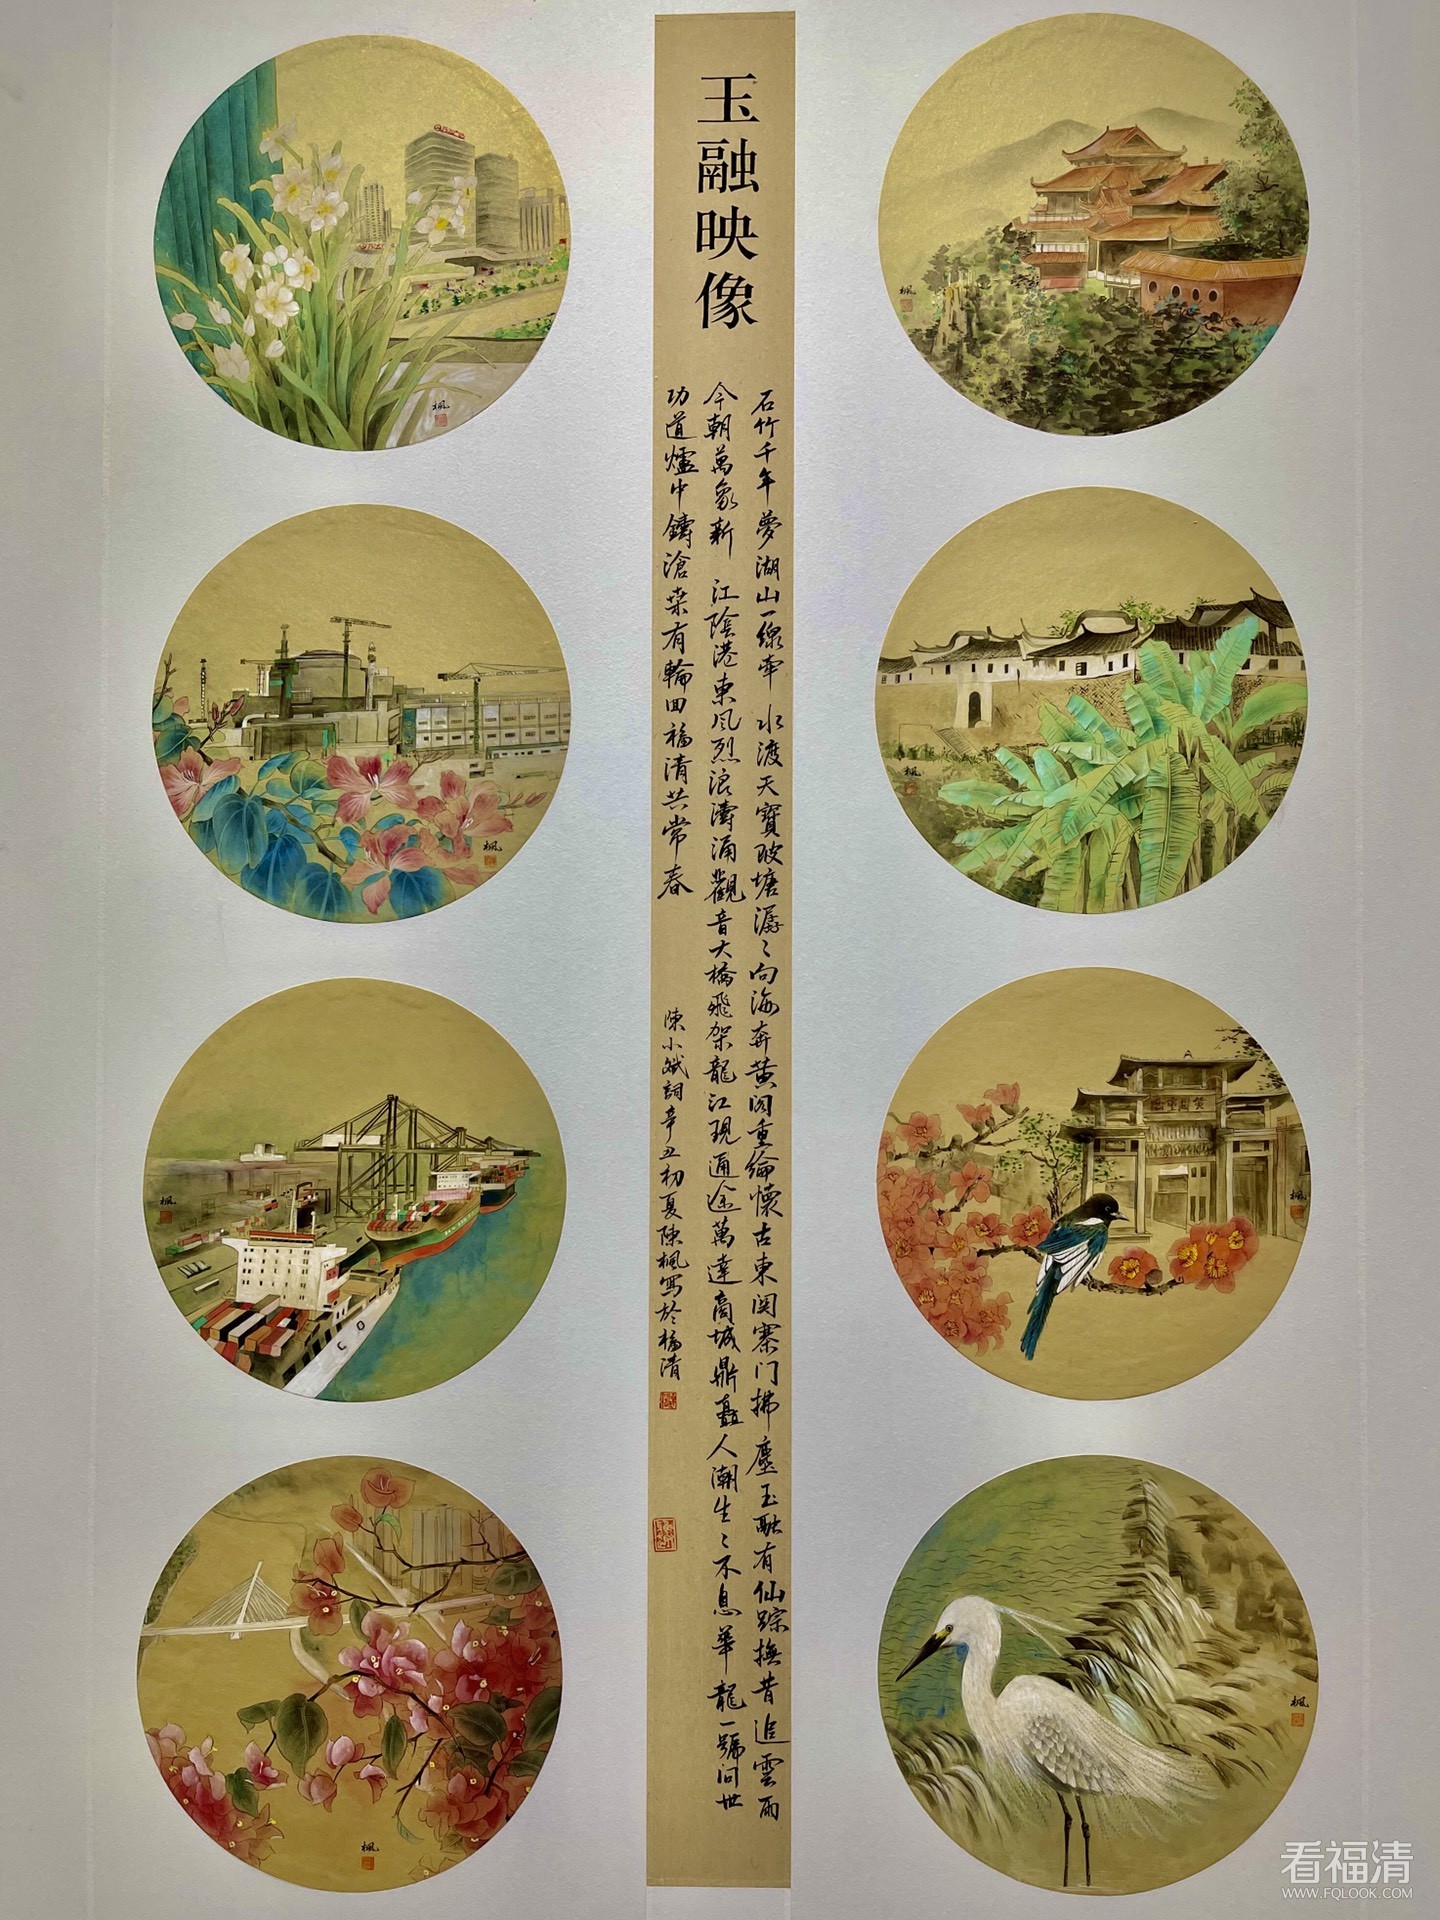 玉融映像
石竹千年夢湖山一線牽 水渡天寶陂塘潺〻向海奔黄閣重綸懷古東関寨门拂塵玉融有仙踪撫昔追雲雨
今朝萬象新 江陰港東风烈浪濤涌觀音大橋飛架龍江現通途萬達商城鼎矗人潮生〻不息華龍一號问世
功道爐中鑄滄桑有輪回福清共常春
陳小斌詞辛丑初夏陳楓寫於福清
楓
楓
楓
楓
楓
楓
楓
楓
C O
看福清
WWW.FQLOOK.COM